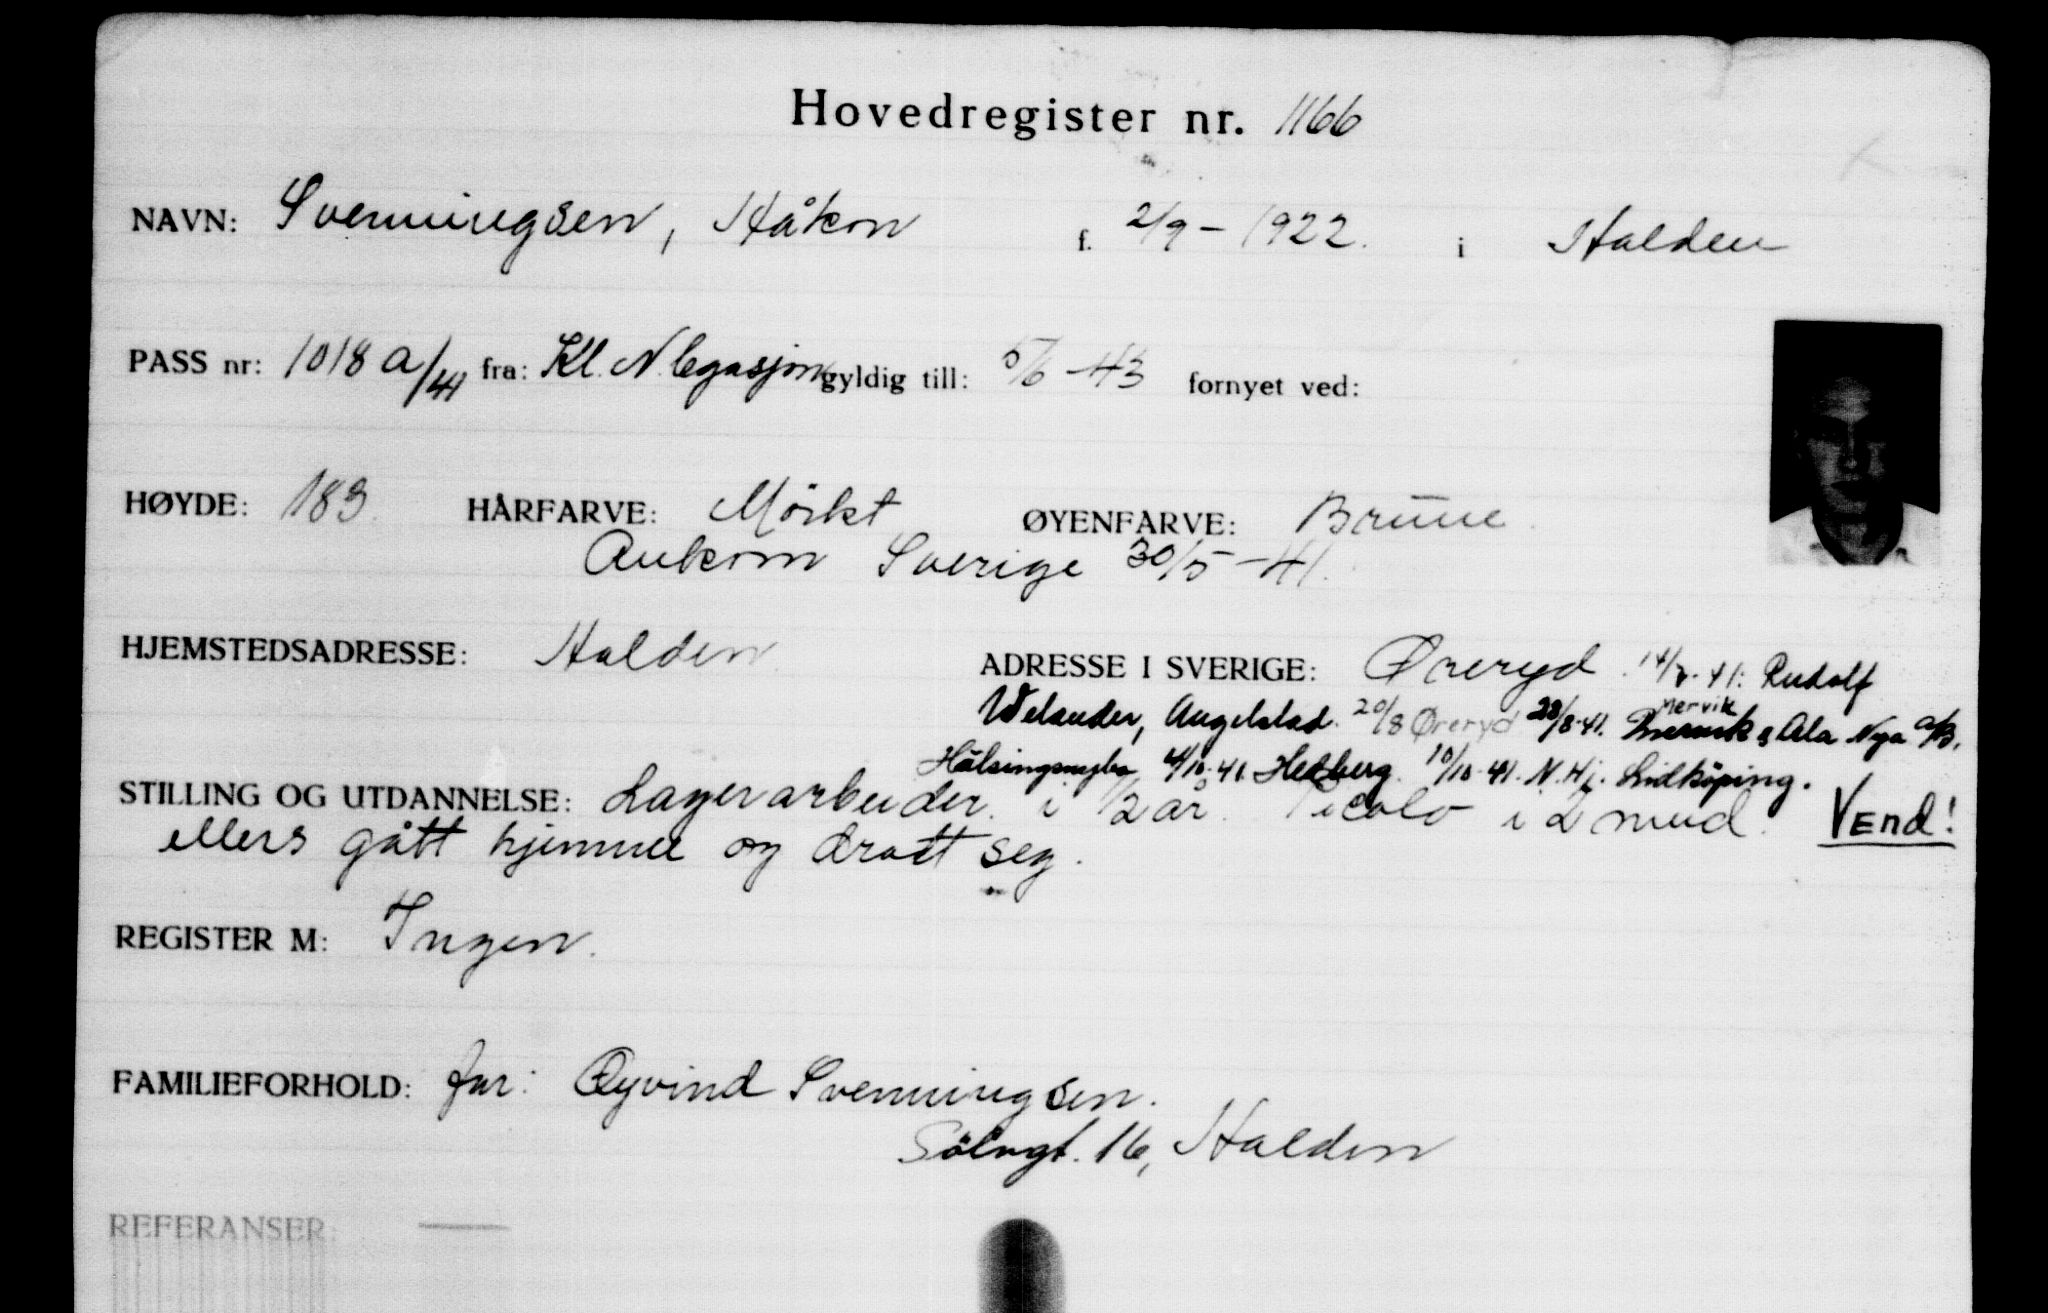 Hovedregister nr. 1166
NAVN: Svenningsen, Håkon f. 2/9 - 1922. i Halden
PASS nr: 1018 a/41 fra: Kl. N. legasjon gyldig till: 5/6 - 43 fornyet ved:
HØYDE: 183. HÅRFARVE: Mörkt ØYENFARVE: Brune
Ankom Sverige 30/5 - 41.
HJEMSTEDSADRESSE: Halden ADRESSE I SVERIGE: Øreryd. 41: Rudolf
Welander, Angelstad. 20/8 Øreryd 28/8-41. Mervik & Ala Nya a/B.
4/10-41. Hedberg. 10/10-41. N. Hj. Lidköping.
STILLING OG UTDANNELSE: Lagerarbeider. i 1/2 år. Picolo i 2 mnd. Vend!
ellers gått hjemme og dratt seg.
REGISTER M: Ingen.
FAMILIEFORHOLD: far: Øyvind Svenningsen.
16, Halden
REFERANSER: —